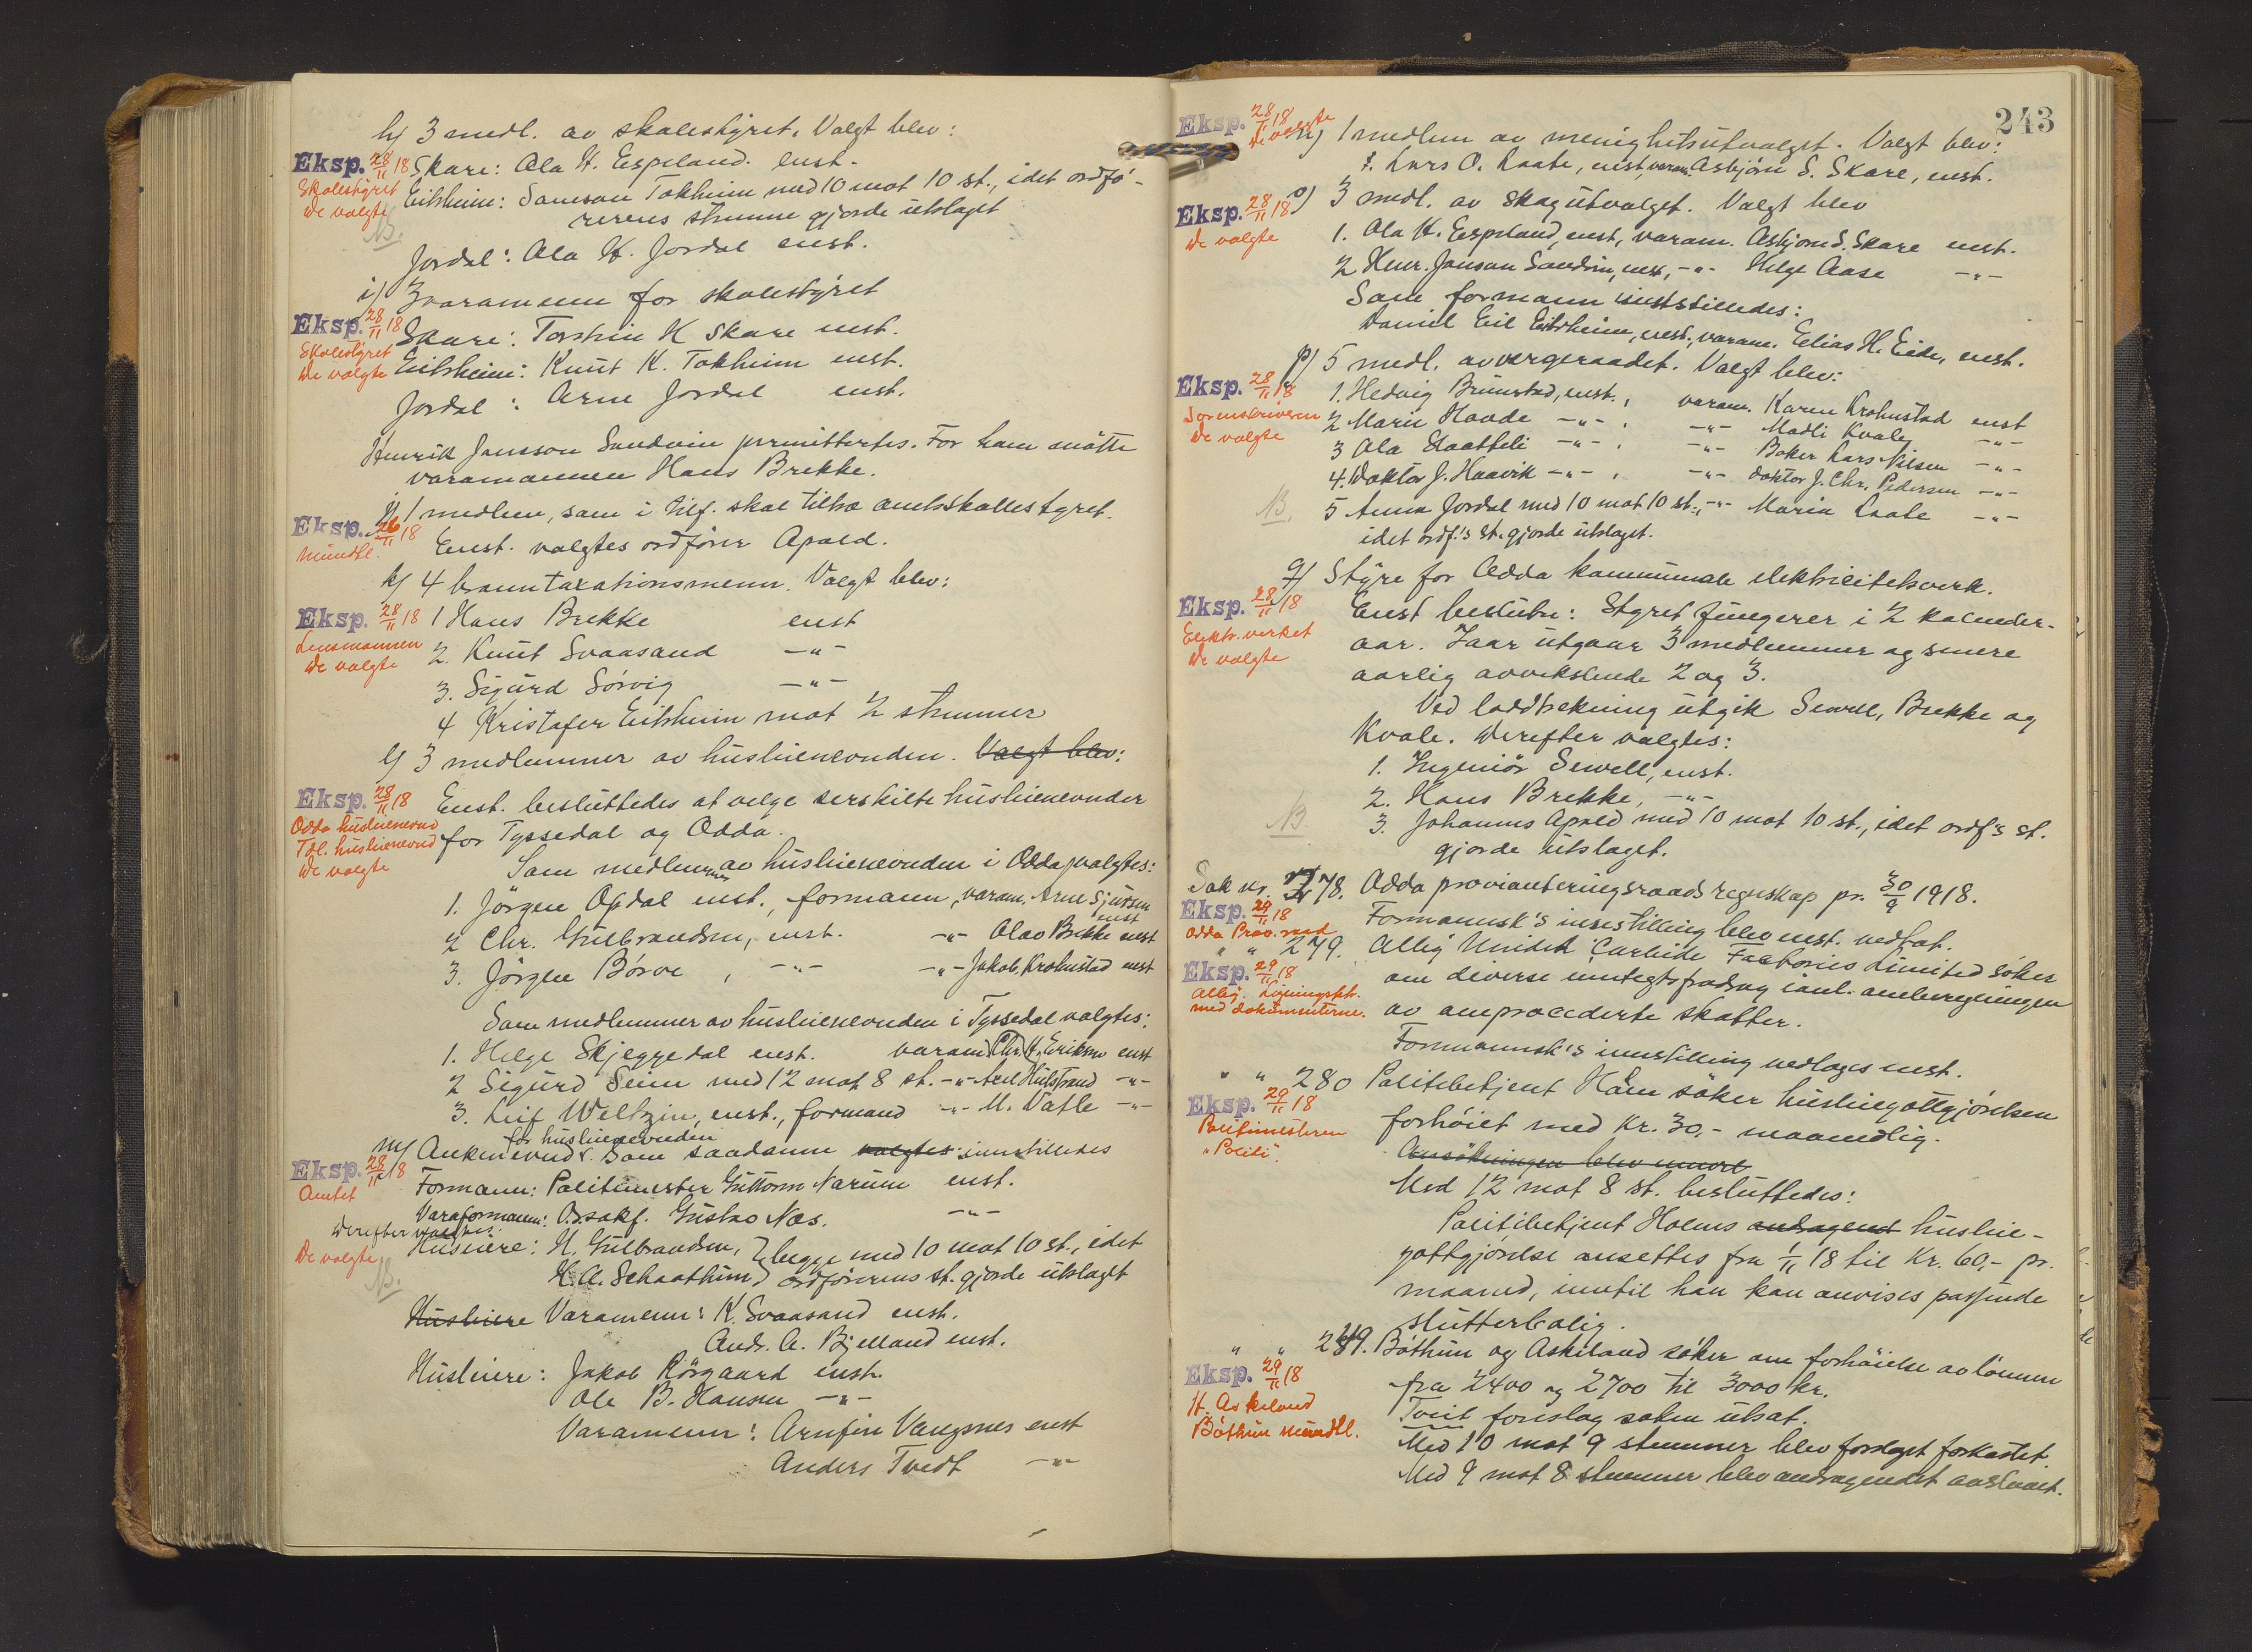 h) 3 medl. av skolestyret. Valgt blev:
Eksp. 28/11 18 Skare: Ola H. Espeland. enst.
Skolestyret
De valgte
Eitrheim: Samson Tokheim med 10 mot 10 st., idet ordfø-
rerens stemme gjorde utslaget
NB.
Jordal: Ola H. Jordal enst.
i) 3 varamenn for skolestyret
Eksp. 28/11 18 Skare: Torstein K Skare enst.
Skolestyret
De valgte
Eitrheim: Knut K. Tokheim enst.
Jordal: Arne Jordal enst.
Henrik Jansson Sandvin permittertes. For ham møtte
varamannen Hans Brekke.
j) 1 medlem, som i tilf. skal tiltræ amtsskattestyret.
Eksp. 26/11 18
Mundtl.
Enst. valgtes ordfører Apold.
k) 4 branntaxationsmenn. Valgt blev:
Eksp. 28/11 18 1 Hans Brekke enst
Lensmannen
De valgte
2. Knut Svaasand -"-
3. Sigurd Sørvig -"-
4 Kristofer Eitrheim mot 2 stemmer
l) 3 medlemmer av husleienevnden. Valgt blev:
Eksp. 28/11 18 Enst. besluttedes at velge serskilte husleienevnder
Odda husleienevnd
Tdl. husleienevnd
De valgte
for Tyssedal og Odda.
Som medlemmer av husleienevnden i Odda valgtes:
1. Jørgen Opdal enst., formann, varam. Arne Sjursen enst
2 Chr. Gulbrandsen, enst. -"- Olav Brekke enst
3. Jørgen Børve, -"- -"- Jakob Krohnstad enst
Som medlemmer av husleienevnden i Tyssedal valgtes:
1. Helge Skjeggedal enst. varam. Chr. H. Eriksen enst
2 Sigurd Seim med 12 mot 8 st. -"- Axel Hultstrand -"-
3. Leif Weltzin, enst., formand -"- M. Vatle -"-
m) Ankenevnd for husleienevnden. Som saadanne valgtes innstilledes
Eksp. 28/11 18
Amtet
Formann: Politimester Guttorm Narum enst.
Varaformann: O.r.sakf. Gustav Næs. -"-
Derefter valgtes:
De valgte
NB.
Huseiere: N. Gulbrandsen, } begge med 10 mot 10 st., idet
H. A. Schaathun } ordførerens st. gjorde utslaget
Husleiere Varamenn: K. Svaasand enst.
Andr. A. Bjelland enst.
Husleiere: Jakob Rørgaard enst.
Ole B. Hansen -"-
Varamenn: Arnfin Vangsnes enst
Anders Tvedt -"-
243
Eksp. 28/11 18
De valgte
n) 1 medlem av menighetsutvalget. Valgt blev:
1. Lars O. Laate, enst, varam. Asbjørn S. Skare, enst.
Eksp. 28/11 18
De valgte
o) 3 medl. av skogutvalget. Valgt blev
1. Ola H. Espeland, enst, varam. Asbjørn S. Skare enst.
2 Henr. Janson Sandvin, enst, -"- Helge Aase -"-
Som formann innstilledes:
Daniel Eitrheim, enst., varam. Elias H. Eide, enst.
p) 5 medl. av vergeraadet. Valgt blev:
Eksp. 28/11 18
Sorenskriveren
De valgte
1. Hedvig Brunstad, enst., varam. Karen Krohnstad enst
2 Marie Hovde -"-, -"- Madli Kvale -"-
3 Ola Slaatteli -"-, -"- Baker Lars Nilsen -"-
4. Doktor J. Haavik -"-, -"- doktor J. Chr. Pedersen -"-
NB. 5 Anna Jordal med 10 mot 10 st., -"- Maria Laate -"-
idet ordf.'s st. gjorde utslaget.
q) Styre for Odda kommunale elektricitetsverk.
Eksp. 28/11 18
Elektr. verket
De valgte
Enst beslutn: Styret fungerer i 2 kalender-
aar. Iaar utgaar 3 medlemmer og senere
aarlig avvekslende 2 og 3.
Ved loddtrekning utgik Sewell, Brekke og
Kvale. Derefter valgtes:
1. Ingeniør Sewell, enst.
2. Hans Brekke, -"-
NB 3. Johannes Apold med 10 mot 10 st., idet ordf's st.
gjorde utslaget.
Sak nr. 278. Odda provianteringsraads regnskap pr. 30/9 1918.
Eksp. 29/11 18
Odda Prov. raad
Formannsk's innstilling blev enst. vedtat.
" " 279. Alby United Carbide Factories Limited søker
Eksp. 29/11 18
Alby. Ligningsktr.
med dokumenterne.
om diverse inntegtsfradrag i anl. omberegningen
av omprocederte skatter.
Formannsk's innstilling vedtoges enst.
" " 280 Politibetjent Holm søker husleiegottgjørelsen
Eksp. 29/11 18
Politimesteren
"Politi".
forhøiet med Kr. 30,- maanedlig.
Ansøkningen blev
Med 12 mot 8 st. besluttedes:
Politibetjent Holms andragend husleie-
gottgjørelse ansettes fra 1/11 18 til Kr. 60,- pr.
maaned, inntil han kan anvises passende
slutterbolig.
" " 281. Bøthun og Askeland søker om forhøielse av lønnen
Eksp. 29/11 18
H. Askeland
Bøthun mundtl.
fra 2400 og 2700 til 3000 kr.
Tveit foreslog saken utsat.
Med 10 mot 9 stemmer blev forslaget forkastet.
Med 9 mot 8 stemmer blev andragendet avslaaet.